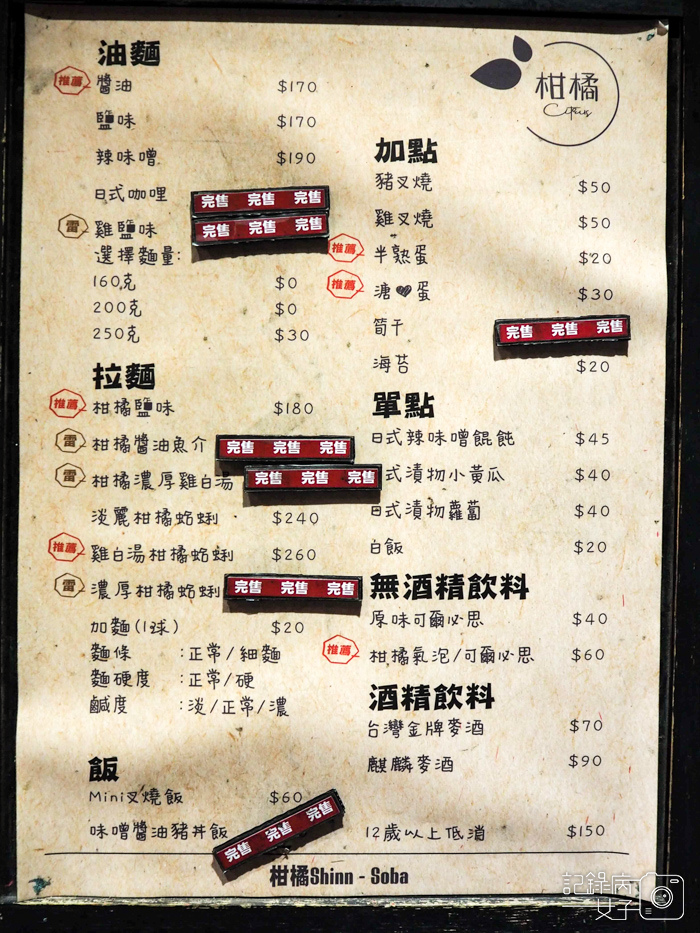 柑橘
Citrus
油麵
推薦 醬油 $170
鹽味 $170
辣味噌 $190
日式咖哩 完售 完售 完售
雷 雞鹽味 完售 完售 完售
選擇麵量:
160克 $0
200克 $0
250克 $30
拉麵
推薦 柑橘鹽味 $180
雷 柑橘醬油魚介 完售 完售 完售
雷 柑橘濃厚雞白湯 完售 完售 完售
淡麗柑橘蛤蜊 $240
推薦 雞白湯柑橘蛤蜊 $260
雷 濃厚柑橘蛤蜊 完售 完售 完售
加麵(1球) $20
麵條 :正常/細麵
麵硬度 :正常/硬
鹹度 :淡/正常/濃
飯
Mini叉燒飯 $60
味噌醬油豬丼飯 完售 完售 完售
加點
豬叉燒 $50
雞叉燒 $50
推薦 半熟蛋 $20
推薦 溏♥蛋 $30
筍干 完售 完售 完售
海苔 $20
單點
日式辣味噌餛飩 $45
式漬物小黃瓜 $40
日式漬物蘿蔔 $40
白飯 $20
無酒精飲料
原味可爾必思 $40
推薦 柑橘氣泡/可爾必思 $60
酒精飲料
台灣金牌麥酒 $70
麒麟麥酒 $90
12歲以上低消 $150
柑橘Shinn - Soba
記錄病女子